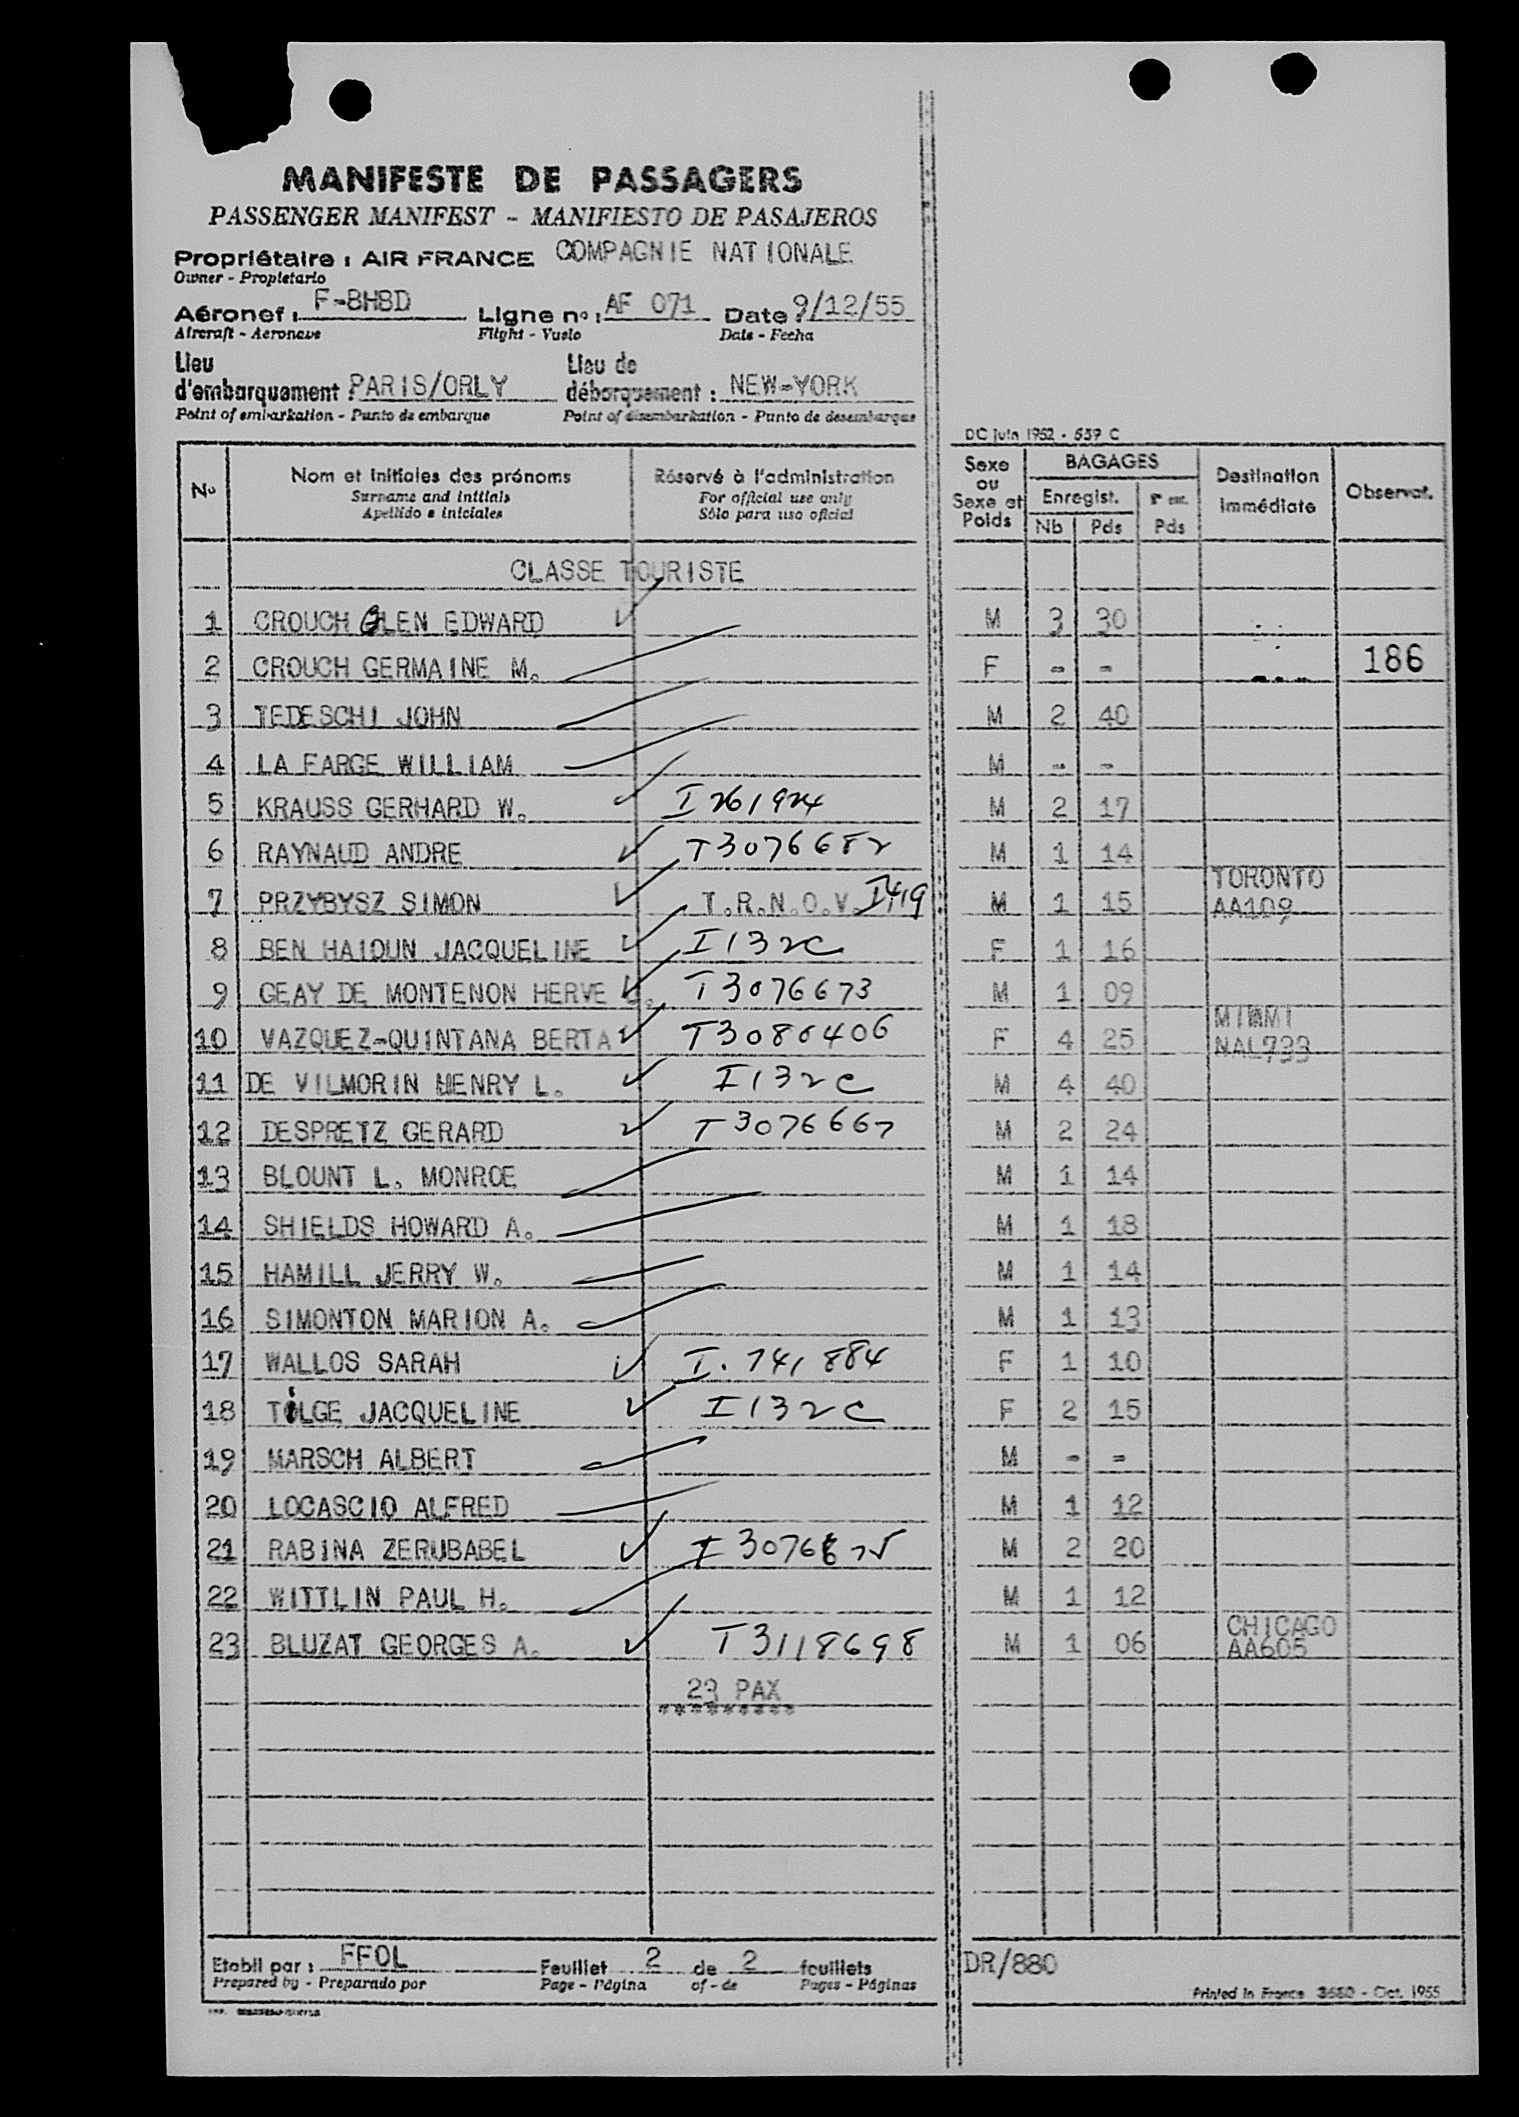 MANIFESTE DE PASSAGERS
PASSENGER MANIFEST - MANIFIESTO DE PASAJEROS
Propriétaire : AIR FRANCE COMPAGNIE NATIONALE
Owner - Propietario
Aéronef : F-BHBD Ligne nº : AF 071 Date : 9/12/55
Aircraft - Aeronave Flight - Vuelo Date - Fecha
Lieu d'embarquement : PARIS/ORLY Lieu de débarquement : NEW-YORK
Point of embarkation - Punto de embarque Point of disembarkation - Punto de desembarque
DC juin 1952 - 559 C
Nº Nom et initiales des prénoms Réservé à l'administration Sexe ou Sexe et Poids BAGAGES Destination immédiate Observat.
Surname and initials For official use only Enregist.
Apellido e iniciales Sólo para uso oficial Nb Pds Pds
CLASSE TOURISTE
1 CROUCH GLEN EDWARD M 3 30
2 CROUCH GERMAINE M. F - - 186
3 TEDESCHI JOHN M 2 40
4 LA FARGE WILLIAM M - -
5 KRAUSS GERHARD W. I 261924 M 2 17
6 RAYNAUD ANDRE T3076682 M 1 14
7 PRZYBYSZ SIMON T.R.N.O.V. M 1 15 TORONTO AA109
8 BEN HAIOUN JACQUELINE I132C F 1 16
9 GEAY DE MONTENON HERVE T3076673 M 1 09
10 VAZQUEZ-QUINTANA BERTA T3080406 F 4 25 MIAMI NAL733
11 DE VILMORIN HENRY L. I132C M 4 40
12 DESPRETZ GERARD T3076667 M 2 24
13 BLOUNT L. MONROE M 1 14
14 SHIELDS HOWARD A. M 1 18
15 HAMILL JERRY W. M 1 14
16 SIMONTON MARION A. M 1 13
17 WALLOS SARAH I.741884 F 1 10
18 TILGE JACQUELINE I132C F 2 15
19 MARSCH ALBERT M - -
20 LOCASCIO ALFRED M 1 12
21 RABINA ZERUBABEL M 2 20
22 WITTLIN PAUL H. M 1 12
23 BLUZAT GEORGES A. T3118698 M 1 06 CHICAGO AA605
23 PAX
*********
Etabli par : FFOL Feuillet 2 de 2 feuillets DR/880
Prepared by - Preparado por Page - Página of - de Pages - Páginas
Printed in France 3680 - Oct. 1955